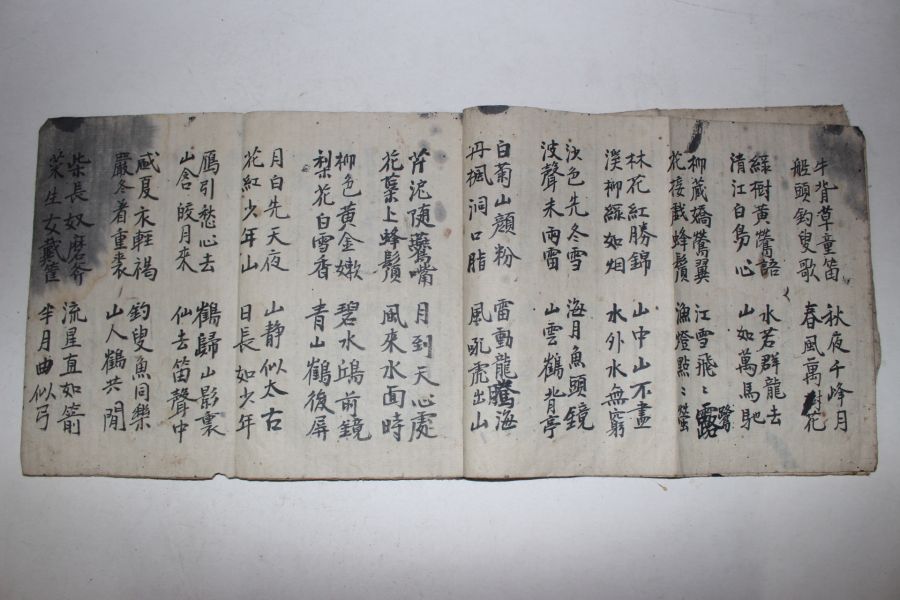 牛背草童笛
船頭釣叟歌
秋夜千峰月
春風萬樹花
綠樹黃鶯語
清江白鳥心
水若群龍去
山如萬馬馳
柳藏嬌鶯翼
花接戱蜂鬚
江雪飛〻鷺
漁燈點〻螢
林花紅勝錦
溪柳綠如烟
山中山不盡
水外水無窮
色先冬雪
波聲未雨雷
海月魚頭鏡
山雲鶴背亭
白菊山顔粉
丹楓洞口脂
雷動龍騰海
風吼虎出山
芹泥随鷰嘴
花蘂上蜂鬚
月到天心處
風來水面時
柳色黃金嫩
梨花白雪香
碧水鷗前鏡
青山鶴後屏
月白先天夜
花紅少年山
山静似太古
日長如少年
鴈引愁心去
山含皎月來
鶴歸山影裏
仙去笛聲中
盛夏衣輕褐
嚴冬着重裘
釣叟魚同樂
山人鶴共閒
柴長奴磨斧
菜生女戴筐
流星直如箭
半月曲似弓